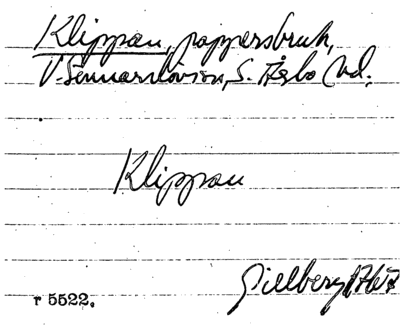 Klippan, pappersbruk,
V. Sönnarslövs sn, S. Åsbo hd.
Klippan
Gillberg 1767
r 5522.